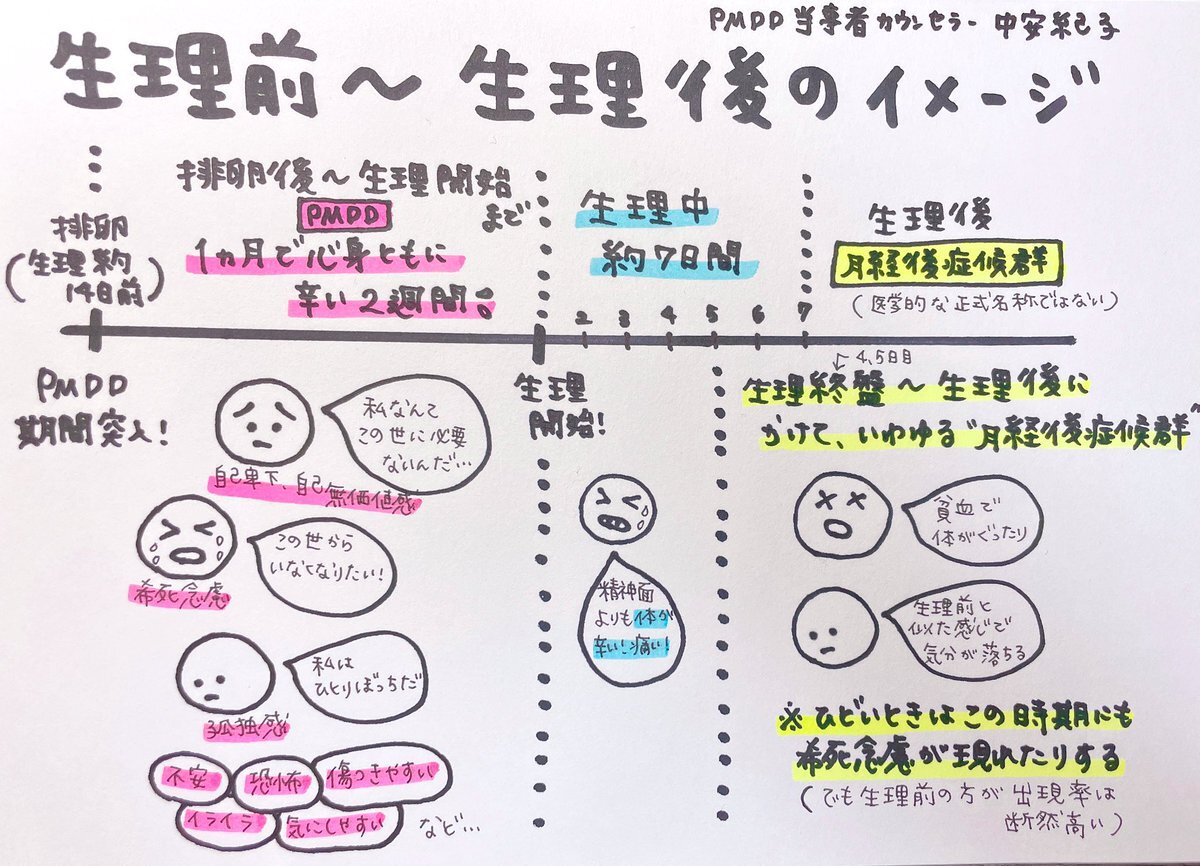 PMDD 当事者カウンセラー 中安紀子
生理前～生理後のイメージ
排卵
(生理約
14日前)
排卵後～生理開始
まで
PMDD
1ヵ月で心身ともに
辛い2週間。
生理中
約7日間
生理後
月経後症候群
(医学的な正式名称ではない)
2 3 4 5 6 7
PMDD
期間突入!
私なんて
この世に必要
ないんだ…
自己卑下、自己無価値感
この世から
いなくなりたい!
希死念慮
私は
ひとりぼっちだ
孤独感
不安 恐怖 傷つきやすい
イライラ 気にしやすい など…
生理
開始!
精神面
よりも体が
辛い!痛い!
4,5日目
生理終盤～生理後に
かけて、いわゆる"月経後症候群"
貧血で
体がぐったり
生理前と
似た感じで
気分が落ちる
※ひどいときはこの時期にも
希死念慮が現れたりする
(でも生理前の方が出現率は
断然高い)